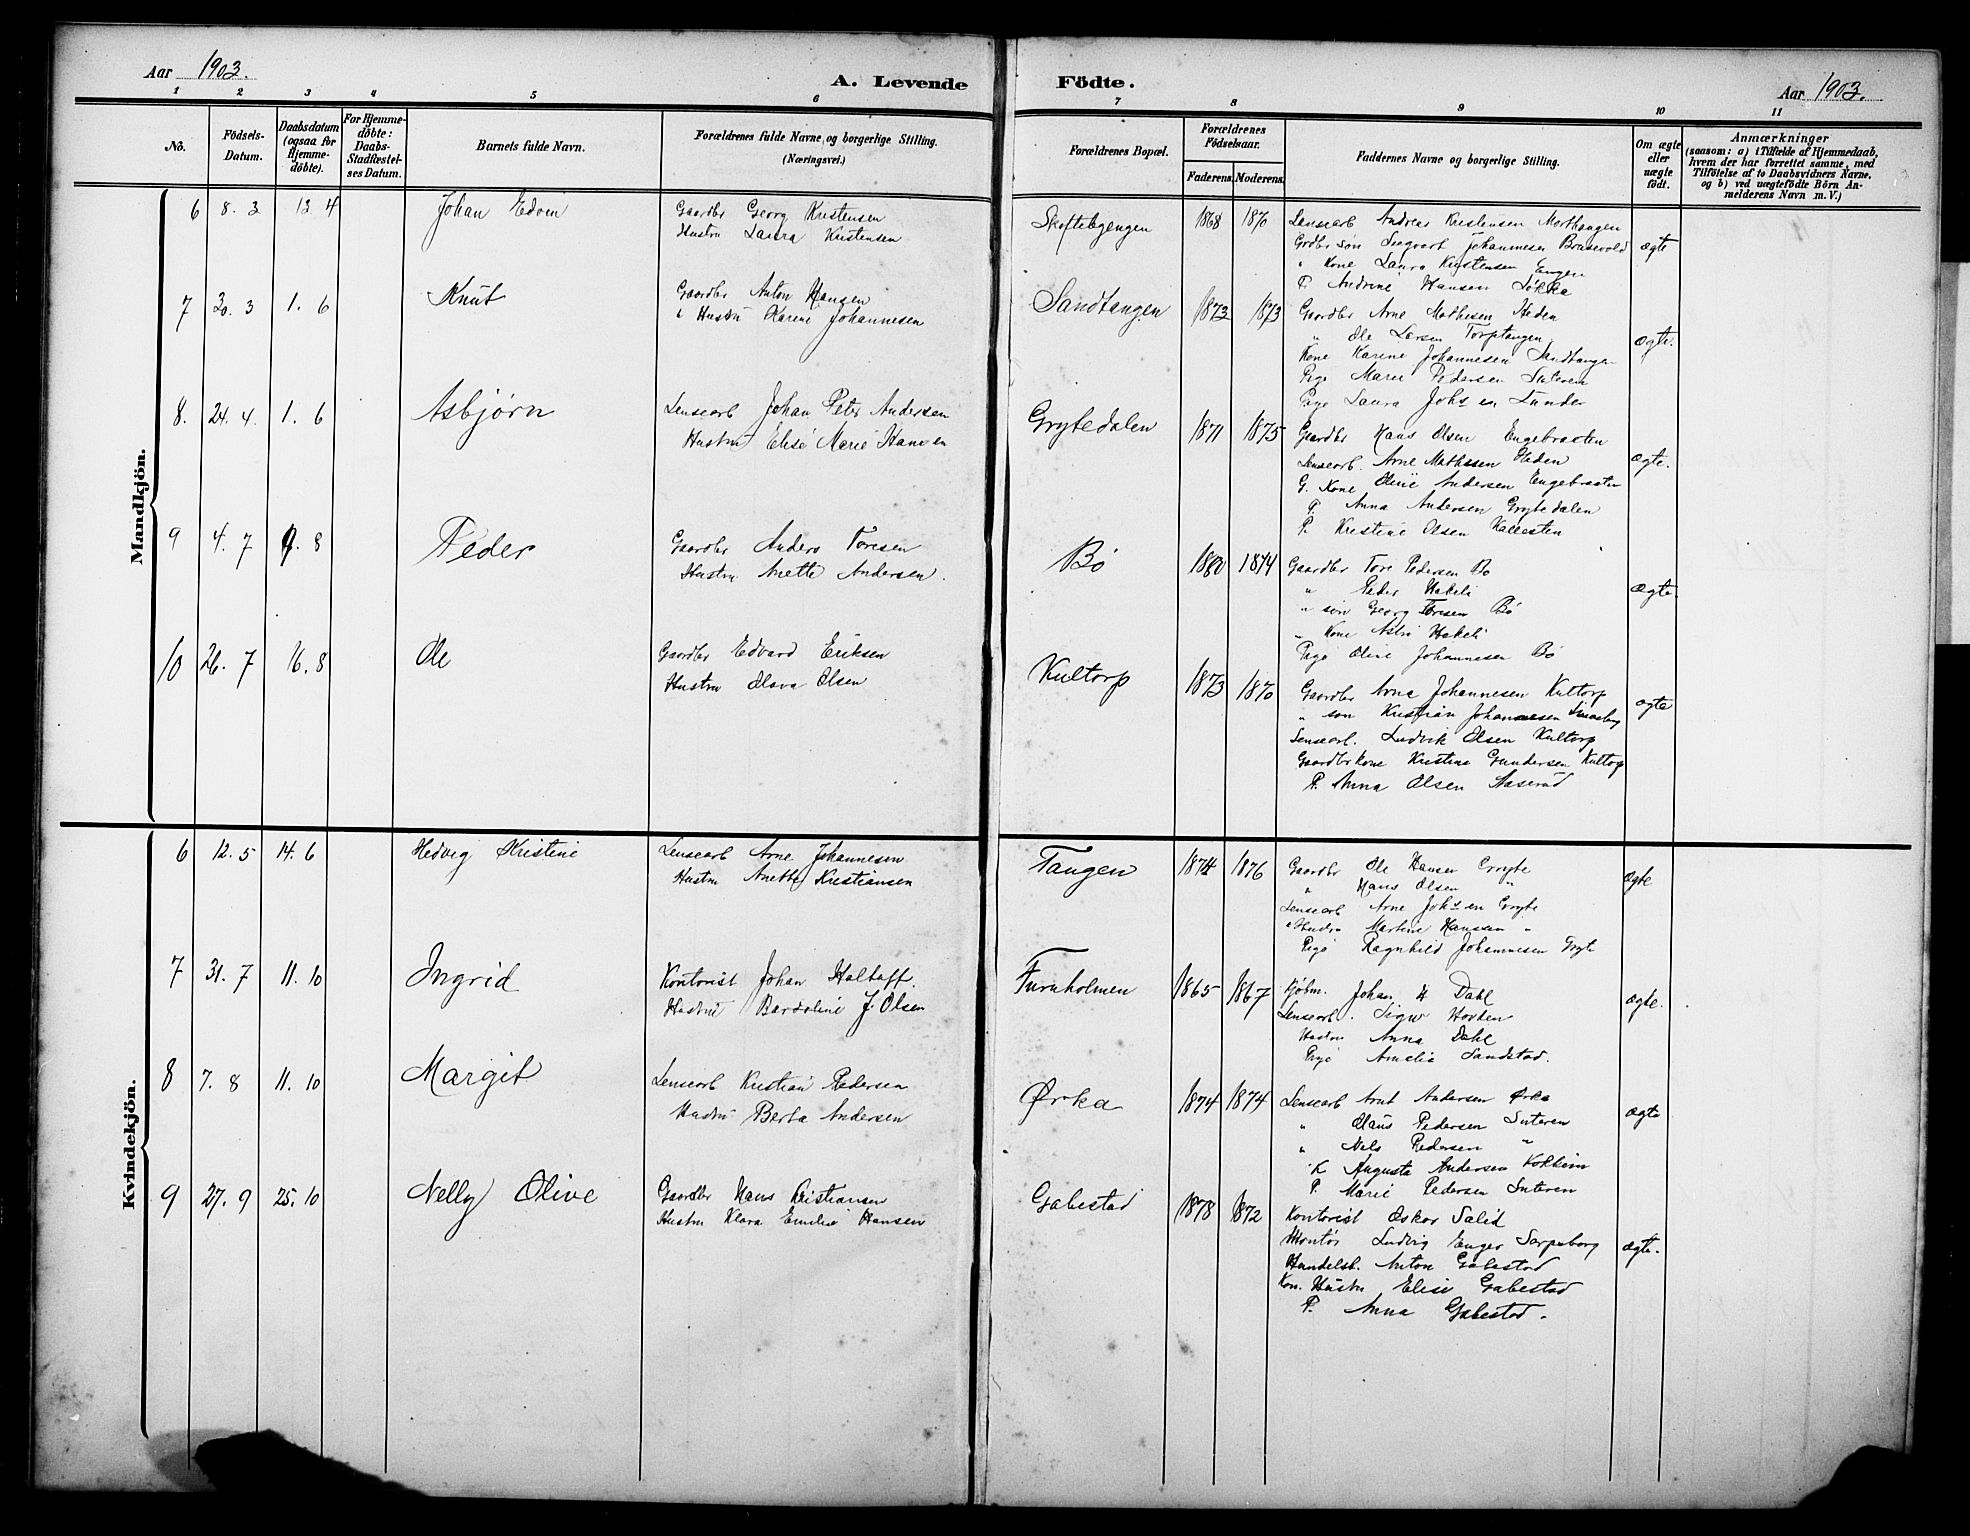 Aar 1903.
A. Levende Födte.
Aar 1903.
1 2 3 4 5 6 7 8 9 10 11
No.
Födsels-Datum.
Daabsdatum (ogsaa for Hjemme-döbte).
For Hjemme-döbte: Daabs-Stadfæstel-ses Datum.
Barnets fulde Navn.
Forældrenes fulde Navne, og borgerlige Stilling.
(Næringsvei.)
Forældrenes Bopæl.
Forældrenes Födselsaar.
Faderens. Moderens.
Faddernes Navne og borgerlige Stilling.
Om ægte eller uægte födt.
Anmærkninger
(saasom: a) i Tilfælde af Hjemmedaab,
hvem der har forrettet samme, med
Tilföielse af to Daabsvidners Navne,
og b) ved uægtefödte Börn An-
melderens Navn m. V.)
Mandkjön.
6 8. 3 13. 4 Johan Edvin Gaardbr Georg Kristensen Skoftebyengen 1868 1870 Lensearb Andreas Kristensen ægte
Hustru Laura Kristensen
Grdbr søn Sigvart Johannesen
" Kone Laura Kristensen Engen
P. Andrine Hansen Løkka
7 20. 3 1. 6 Knut Gaardbr Anton Hansen Sandtangen 1873 1873 Gaardbr Arne Mathesen Heden ægte.
Hustru Karine Johannesen
" Ole Larsen Torptangen
Kone Karine Johannesen Sandtangen
Pige Marie Pedersen Sateren
Pige Laura Johs en Lunder
8. 24. 4. 1. 6 Asbjørn Lensearb Johan Peter Andersen Grytedalen 1871 1875 Gaardbr Hans Olsen Engebraaten ægte.
Hustru Elise Marie Hansen
Lensearb. Arne Mathesen Heden
G. Kone Oline Andersen Engebraaten
P. Anna Andersen Grytedalen
P. Kristine Olsen
9 4. 7 9. 8 Peder Gaardbr Anders Toresen Bö 1880 1874 Gaardbr Tore Pedersen Bö ægte.
Hustru Anette Andersen.
" Peder Hakeli
" søn Georg Toresen Bö
" Kone Hakeli
Pige Oline Johannesen Bö
10 26. 7 16. 8 Ole Gaardbr Edvard Eriksen Kultorp 1873 1870 Gaardbr Arne Johannesen Kultorp ægte
Hustru Olava Olsen
" søn Kristian Johannesen
Lensearb. Ludvik Olsen Kultorp
Gaardbrkone Kristine Gundersen Kultorp
P. Anna Olsen Aaserud
Kvindekjön.
6 12. 5 14. 6 Hedvig Kristine Lensearb Arne Johannesen Tangen 1874 1876 Gaardbr Ole Hansen Gryte ægte
Hustru Anette Kristiansen
" Hans Olsen "
Lensearb Arne Johs en Gryte
" Hustru Martine Hanssen "
Pige Ragnhild Johannesen Gryte
7 31. 7 11. 10 Ingrid Kontorist Johan Holtaff. Furuholmen 1865 1867 Johan H Dahl ægte.
Hustru Bardoline J. Olsen
Lensearb. Hovden
Hustru Anna Dahl
Pige Amelie Sandstad.
8 7. 8 11. 10 Margit Lensearb Kristian Pedersen Ørka 1874 1874 Lensearb Arnt Andersen Ørka ægte
Hustru Berta Andersen
" Olaus Pedersen Sateren
" Nels Pedersen "
K Augusta Andersen
P. Marie Pedersen Sateren
9 27. 9 25. 10 Nelly Olive Gaardbr Hans Kristiansen Gabestad 1878 1872 Kontorist Oskar Salid ægte.
Hustru Klara Emilie Hansen
Montör Ludvig Enger Sarpsborg
Handelsb. Anton Gabestad
Kon. Hustru Elise Gabestad
P. Anna Gabestad.